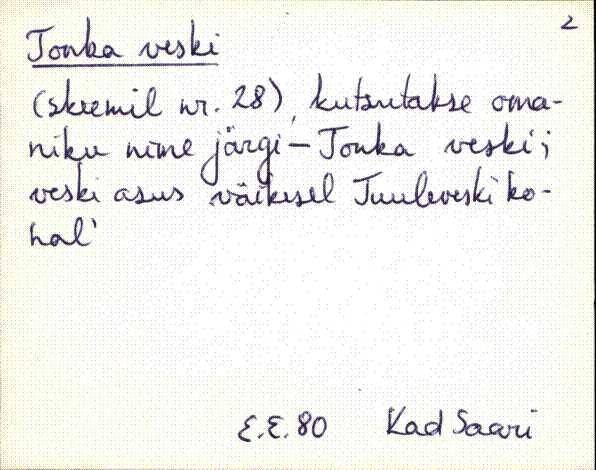 2
Tonka veski
(skeemil nr. 28), kutsutakse oma-
niku nime järgi – Tonka veski;
veski asus väikesel Tuuleveski ko-
hal'
E.E.80 Kad Saari